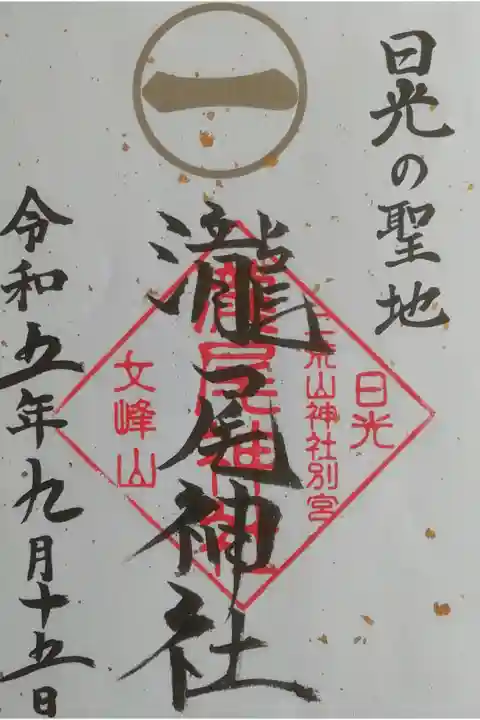 一
日光の聖地
瀧尾神社
令和五年九月十五日
日光
二荒山神社別宮
瀧尾神社
文峰山